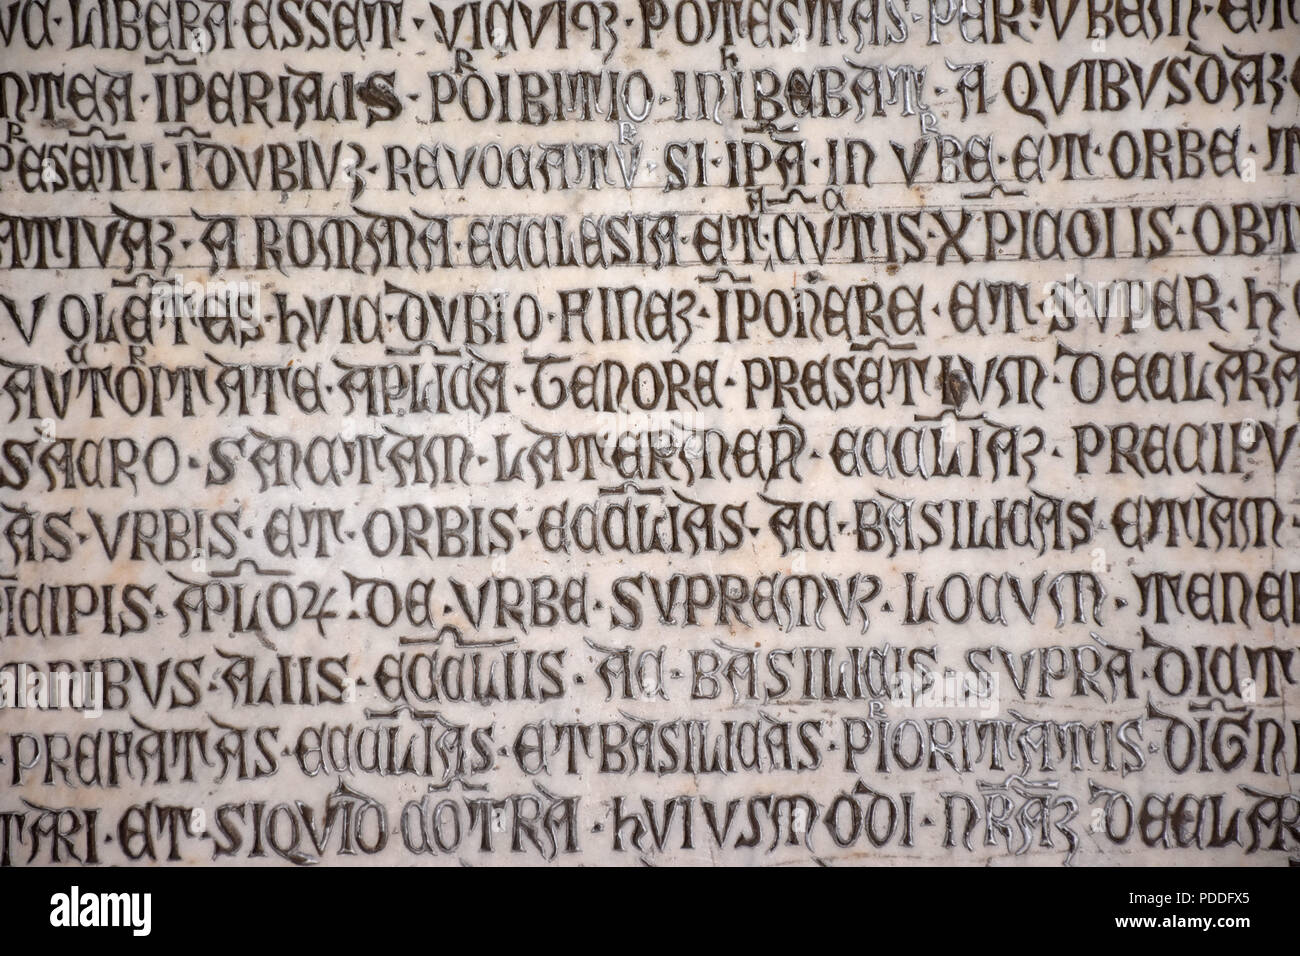 LIBERA ESSET · VIQVIꝜ · POTESTAS · PER · VBEM · ET
NTEA · IP̄ERIALIS · PᴿOIBITIO · INʰIBEBAT · A QVIBVSDAꝫ ·
PᴿESĒTI · Ī DVBIVꝫ · REVOCATVᴿ · SI · IPĀ · IN VᴿBE · ET · ORBE ·
ATIVAꝫ · A ROMANA · ECCLESIA · ET · CVTIS · X̄PICOLIS · OBT
VOLĒTES · HVIC · DVBIO · FINEꝫ · IP̄ONERE · ET · SVPER · H
AVᶜTOᴿITATE · AP̄LICA · TENORE · PRESĒTIVM · DECLARA
SACRO · SANCTAM · LATERANEN̄ · ECCL̄IAꝫ · PRECIPV
AS · VRBIS · ET · ORBIS · ECCL̄IAS · AC · BASILICAS ETIAM ·
NCIPIS · AP̄LOꝜ · DE · VRBE · SVPREMVꝫ · LOCVM · TENE
OMNIBVS · ALIIS · ECCL̄IIS · AC · BASILICIS · SVPRA · DICT
PREFATAS · ECCL̄IAS · ET BASILICAS · PᴿIORITATIS · DIḠN
TARI · ET · SIQVID CŌTRA · HVIVSMODI · NR̄AꝫDECLAR
alamy
Image ID: PDDFX5
www.alamy.com